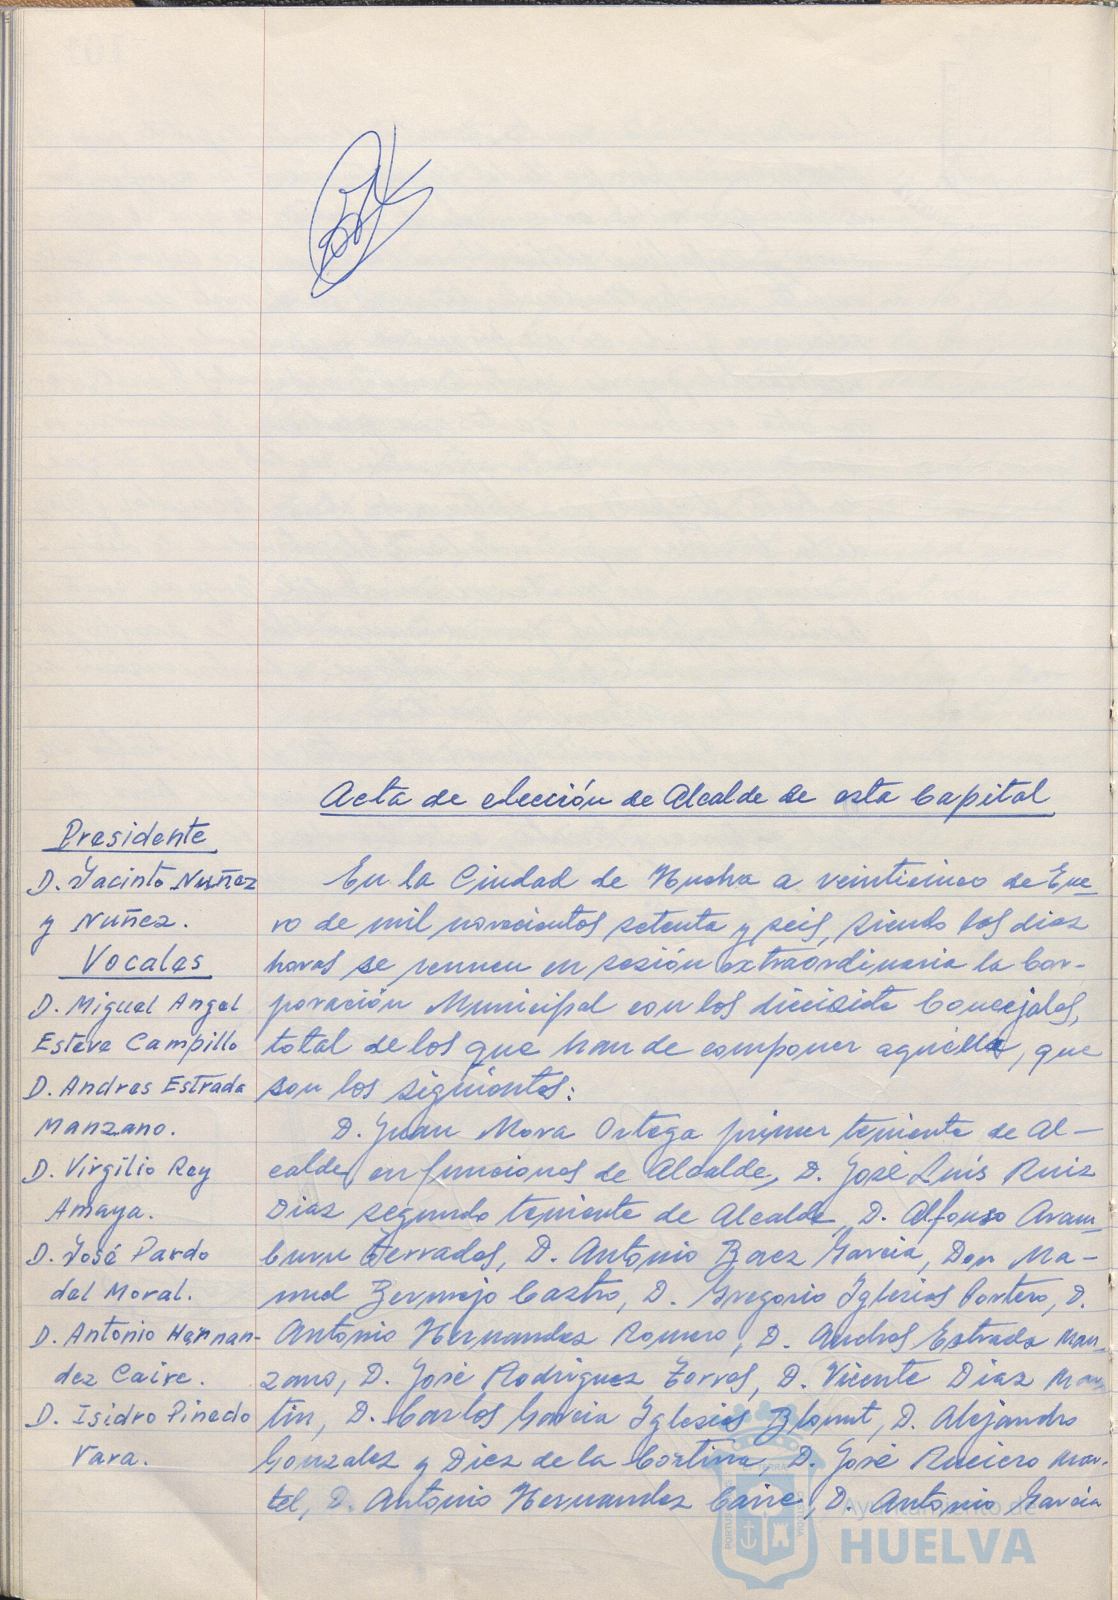 Acta de elección de Alcalde de esta Capital
Presidente
D. Jacinto Nuñez
y Nuñez.
Vocales
D. Miguel Angel
Esteve Campillo
D. Andres Estrada
Manzano.
D. Virgilio Rey
Amaya.
D. José Pardo
del Moral.
D. Antonio Hernan-
dez Caire.
D. Isidro Pinedo
Vara.
En la Ciudad de Huelva a veinticinco de Ene
ro de mil novecientos setenta y seis, siendo las diez
horas se reunen en sesión extraordinaria la Cor-
poración Municipal con los diecisiete Concejales,
total de los que han de componer aquella, que
son los siguientes:
D. Juan Mora Ortega primer teniente de Al-
calde, en funciones de Alcalde, D. José Luís Ruiz
Diaz segundo teniente de Alcalde, D. Alfonso Aram
buru Terrades, D. Antonio Baez Garcia, Don Ma-
nuel Bermejo Castro, D. Gregorio Iglesias Portero, D.
Antonio Hernandez Romero, D. Andres Estrada Man-
zano, D. José Rodriguez Torres, D. Vicente Diaz Mar
tin, D. Carlos Garcia Iglesias Blount, D. Alejandro
Gonzalez y Diez de la Cortina, D. José Ruciero Mar-
tel, D. Antonio Hernandez Caire, D. Antonio Garcia
Ayuntamiento de
HUELVA